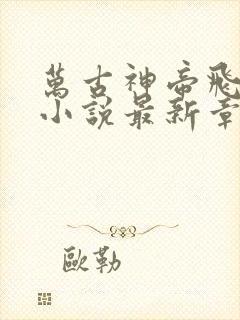 萬古神帝飛
小說最新章
歐勒